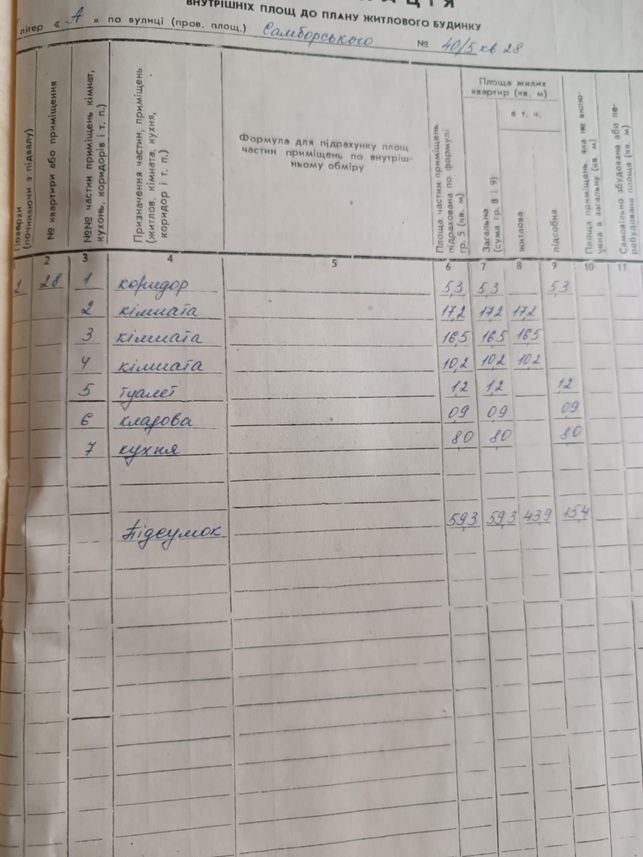 ЦІЯ
ВНУТРІШНІХ ПЛОЩ ДО ПЛАНУ ЖИТЛОВОГО БУДИНКУ
літер « А » по вулиці (пров. площ.) Самборського № 40/5 кв 28
Поверхи (починаючи з підвалу)
№ квартири або приміщення
№№ частин приміщень кімнат, кухонь, коридорів і т. п.)
Призначення частин, приміщень (житлов. кімната, кухня, коридор і т. п.)
Формула для підрахунку площ
частин приміщень по внутріш-
ньому обміру
Площа частин приміщень підрахована по формулі гр. 5 (кв. м)
Площа жилих
квартир (кв. м)
Загальна (сума гр. 8 і 9)
в т. ч.
житлова
підсобна
Площа приміщень, яка не вклю-чена в загальну (кв. м)
Самовільно збудована або пе-ребудована площа (кв. м)
2 3 4 5 6 7 8 9 10 11
2 28 1 коридор 5,3 5,3 5,3
2 кімната 17,2 17,2 17,2
3 кімната 16,5 16,5 16,5
4 кімната 10,2 10,2 10,2
5 туалет 1,2 1,2 1,2
6 кладова 0,9 0,9 0,9
7 кухня 8,0 8,0 8,0
Підсумок 59,3 59,3 43,9 15,4